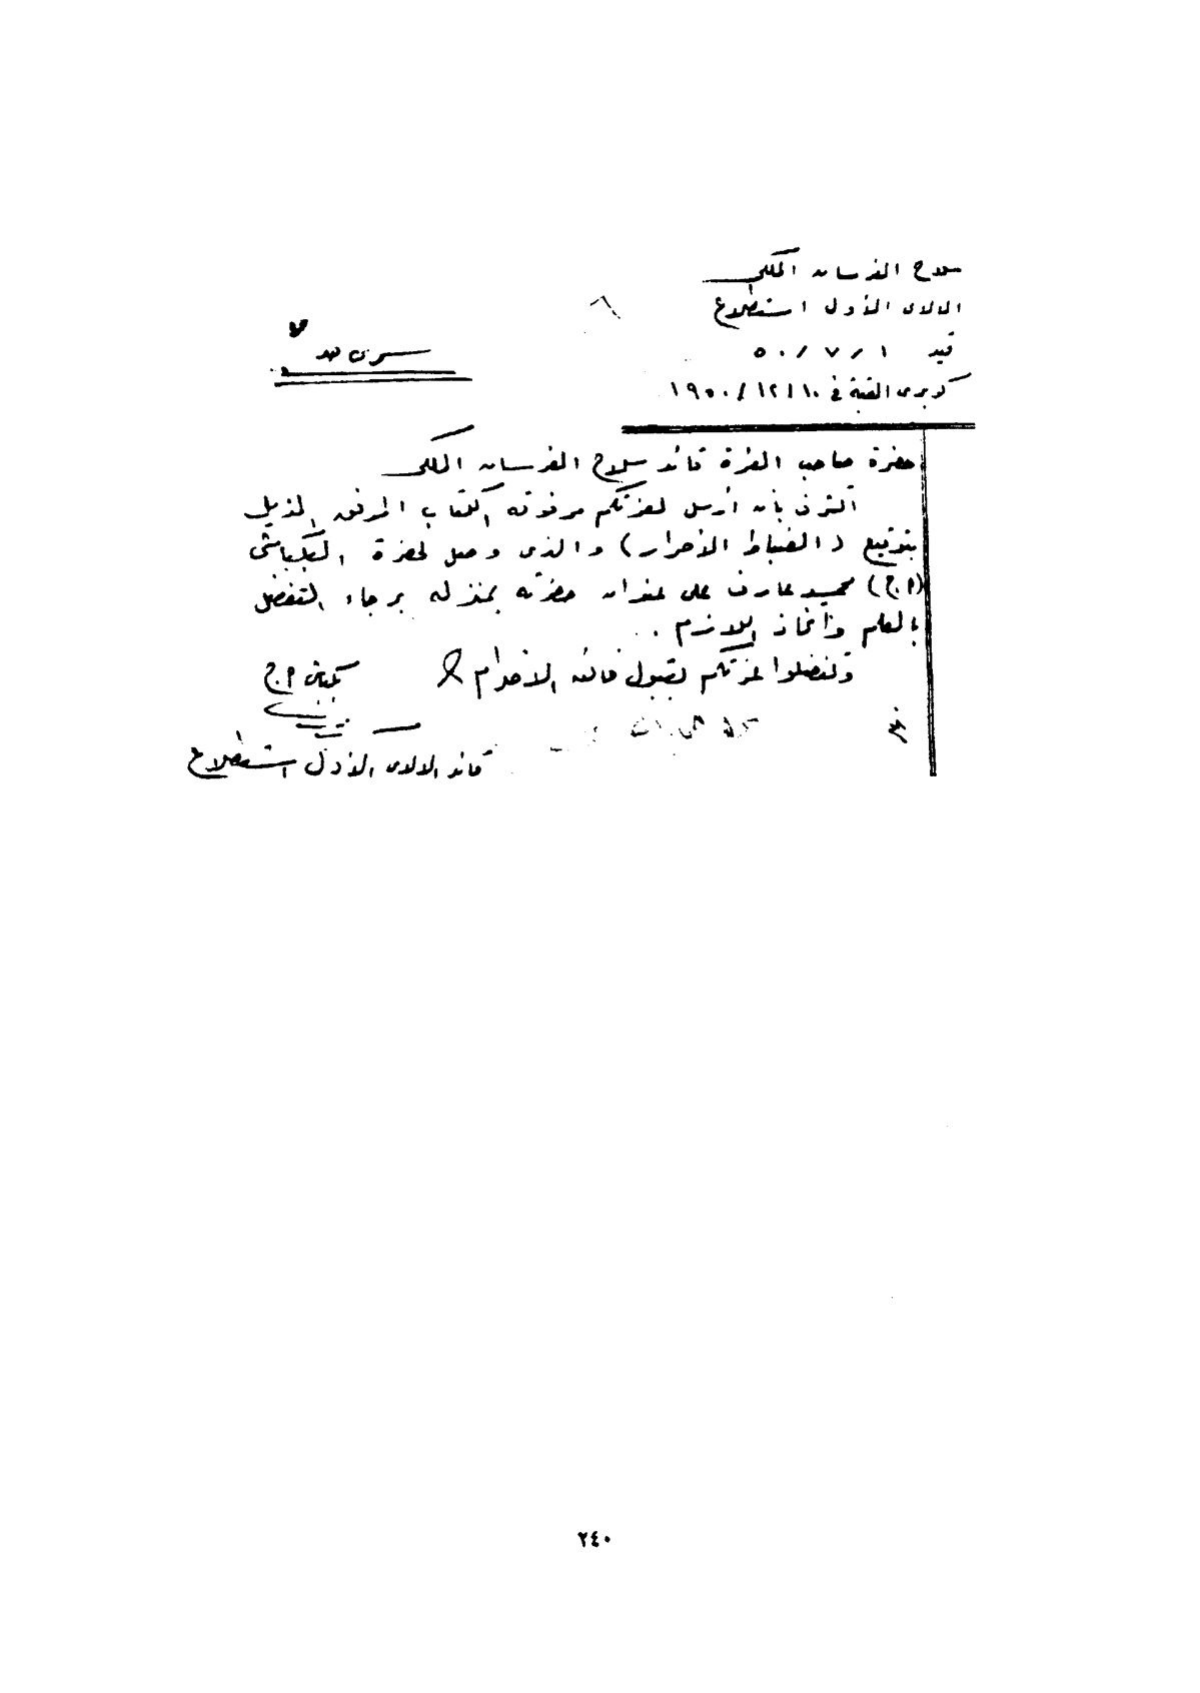 سلاح الفرسان الملكى
الالاى الأول استطلاع
قيد ١ / ٧ / ٥٠
سرى جدا
كوبرى القبة فى ١٠ / ١٢ / ١٩٥٠
حضرة صاحب العزة قائد سلاح الفرسان الملكى
أتشرف بأن أرسل لعزتكم مرفوقه الكتاب المرفق المذيل
بتوقيع (الضباط الأحرار) والذى وصل لحضرة البكباشى
(أ.ح) محمد عارف على عنوان حضرته بمنزله برجاء التفضل
بالعلم واتخاذ اللازم .
وتفضلوا عزتكم بقبول فائق الاحترام
بكباشى أ.ح
قائد الالاى الأول استطلاع
٢٤٠